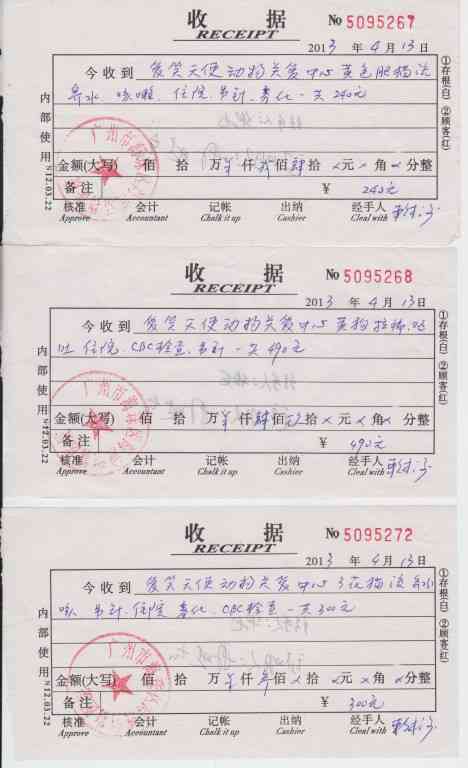 收 据 No 5095267
RECEIPT
2013 年 4 月 13 日
今收到 天使动物关爱中心 黄色肥猫流
鼻水 咳嗽 住院 吊针 雾化 一天 240元
内部使用 N12.03.22
①存根(白) ②顾客(红)
金额(大写) 佰 拾 万 仟 佰 肆 拾 元 角 分整
备注 ¥ 240元
核准 会计 记帐 出纳 经手人
Approve Accountant Chalk it up Cashier Cleal with
收 据 No 5095268
RECEIPT
2013 年 4 月 13 日
今收到 天使动物关爱中心 黄狗拉稀 呕
吐 住院 CBC检查 吊针 一天 490元
内部使用 N12.03.22
①存根(白) ②顾客(红)
金额(大写) 佰 拾 万 仟 肆 佰 玖 拾 元 角 分整
备注 ¥ 490元
核准 会计 记帐 出纳 经手人
Approve Accountant Chalk it up Cashier Cleal with
收 据 No 5095272
RECEIPT
2013 年 4 月 13 日
今收到 天使动物关爱中心 三花猫 流鼻水
咳 吊针 住院 雾化 CBC检查 一天 300元
内部使用 N12.03.22
①存根(白) ②顾客(红)
金额(大写) 佰 拾 万 仟 佰 拾 元 角 分整
备注 ¥ 300元
核准 会计 记帐 出纳 经手人
Approve Accountant Chalk it up Cashier Cleal with